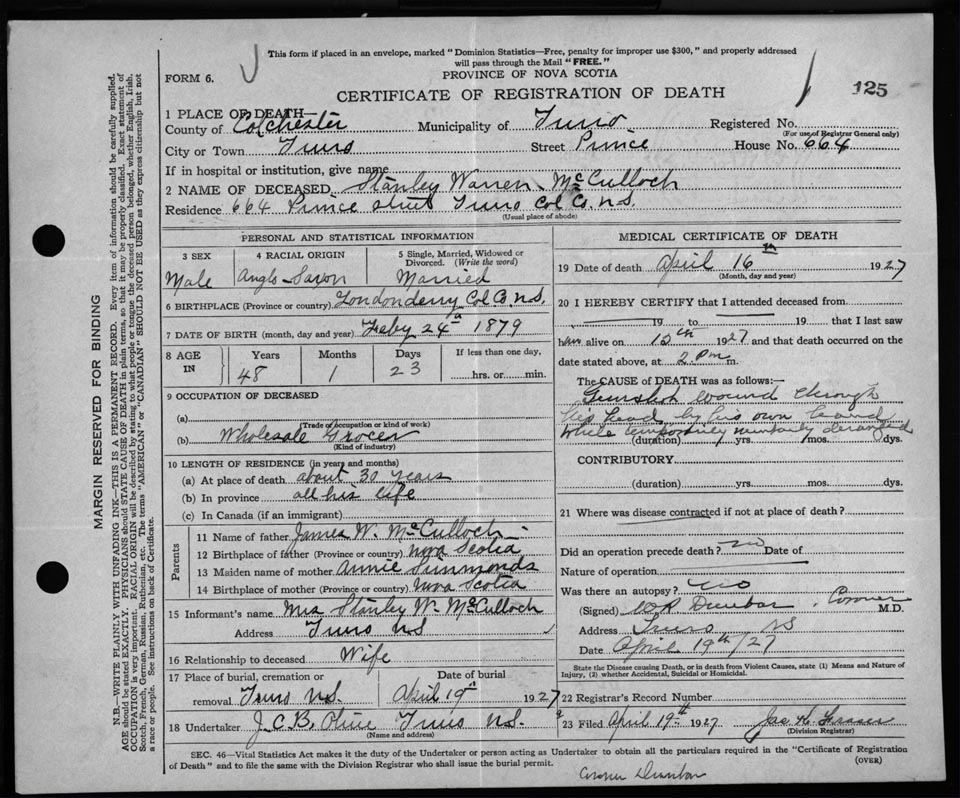 This form if placed in an envelope, marked "Dominion Statistics—Free, penalty for improper use $300," and properly addressed
will pass through the Mail "FREE."
FORM 6.
PROVINCE OF NOVA SCOTIA
CERTIFICATE OF REGISTRATION OF DEATH
125
1 PLACE OF DEATH—
County of Colchester Municipality of Truro Registered No.
(For use of Registrar General only)
City or Town Truro Street Prince House No. 664
If in hospital or institution, give name
2 NAME OF DECEASED Stanley Warren McCulloch
Residence 664 Prince Street Truro Col Co. N.S.
(Usual place of abode)
PERSONAL AND STATISTICAL INFORMATION
3 SEX
Male
4 RACIAL ORIGIN
Anglo-Saxon
5 Single, Married, Widowed or
Divorced. (Write the word)
Married
6 BIRTHPLACE (Province or country) Londonderry Col Co. N.S.
7 DATE OF BIRTH (month, day and year) Feby 24th 1879
8 AGE
IN
Years
48
Months
1
Days
23
If less than one day,
hrs. or min.
9 OCCUPATION OF DECEASED
(a)
(Trade of occupation or kind of work)
(b) Wholesale Grocer
(Kind of industry)
10 LENGTH OF RESIDENCE (in years and months)
(a) At place of death about 30 years
(b) In province all his life
(c) In Canada (if an immigrant)
Parents
11 Name of father James W. McCulloch
12 Birthplace of father (Province or country) Nova Scotia
13 Maiden name of mother Annie Simmonds
14 Birthplace of mother (Province or country) Nova Scotia
15 Informant's name Mrs Stanley W. McCulloch
Address Truro NS
16 Relationship to deceased Wife
17 Place of burial, cremation or
removal Truro N.S.
Date of burial
April 19th 1927
18 Undertaker J.C.B. Olive Truro N.S.
(Name and address)
MEDICAL CERTIFICATE OF DEATH
19 Date of death April 16th 1927
(Month, day and year)
20 I HEREBY CERTIFY that I attended deceased from
19 to 19 that I last saw
him alive on 12th 1927 and that death occurred on the
date stated above, at 2 Pm m.
The CAUSE OF DEATH was as follows:—
Gunshot wound through
his head by his own hand
while temporarily mentally deranged
(duration) yrs. mos. dys.
CONTRIBUTORY
(duration) yrs. mos. dys.
21 Where was disease contracted if not at place of death?
Did an operation precede death? no Date of
Nature of operation
Was there an autopsy? no
(Signed) Dunbar, Coroner M.D.
Address Truro NS
Date April 19th/27
State the Disease causing Death, or in death from Violent Causes, state (1) Means and Nature of
Injury, (2) whether Accidental, Suicidal or Homicidal.
22 Registrar's Record Number
23 Filed April 19th 1927 Jas H.
(Division Registrar)
SEC. 46—Vital Statistics Act makes it the duty of the Undertaker or person acting as Undertaker to obtain all the particulars required in the "Certificate of Registration
of Death" and to file the same with the Division Registrar who shall issue the burial permit.
(OVER)
Coroner Dunbar
MARGIN RESERVED FOR BINDING
N.B.—WRITE PLAINLY WITH UNFADING INK—THIS IS A PERMANENT RECORD. Every item of information should be carefully supplied.
AGE should be stated EXACTLY. PHYSICIANS should STATE CAUSE OF DEATH in plain terms, so that it may be properly classified. Exact statement of
OCCUPATION is very important. RACIAL ORIGIN will be described by stating to what people or tongue the deceased person belonged, whether English, Irish,
Scotch, French, German, Russian, Ruthenian, etc. The terms "AMERICAN" or "CANADIAN" SHOULD NOT BE USED as they express citizenship but not
a race or people. See instructions on back of Certificate.